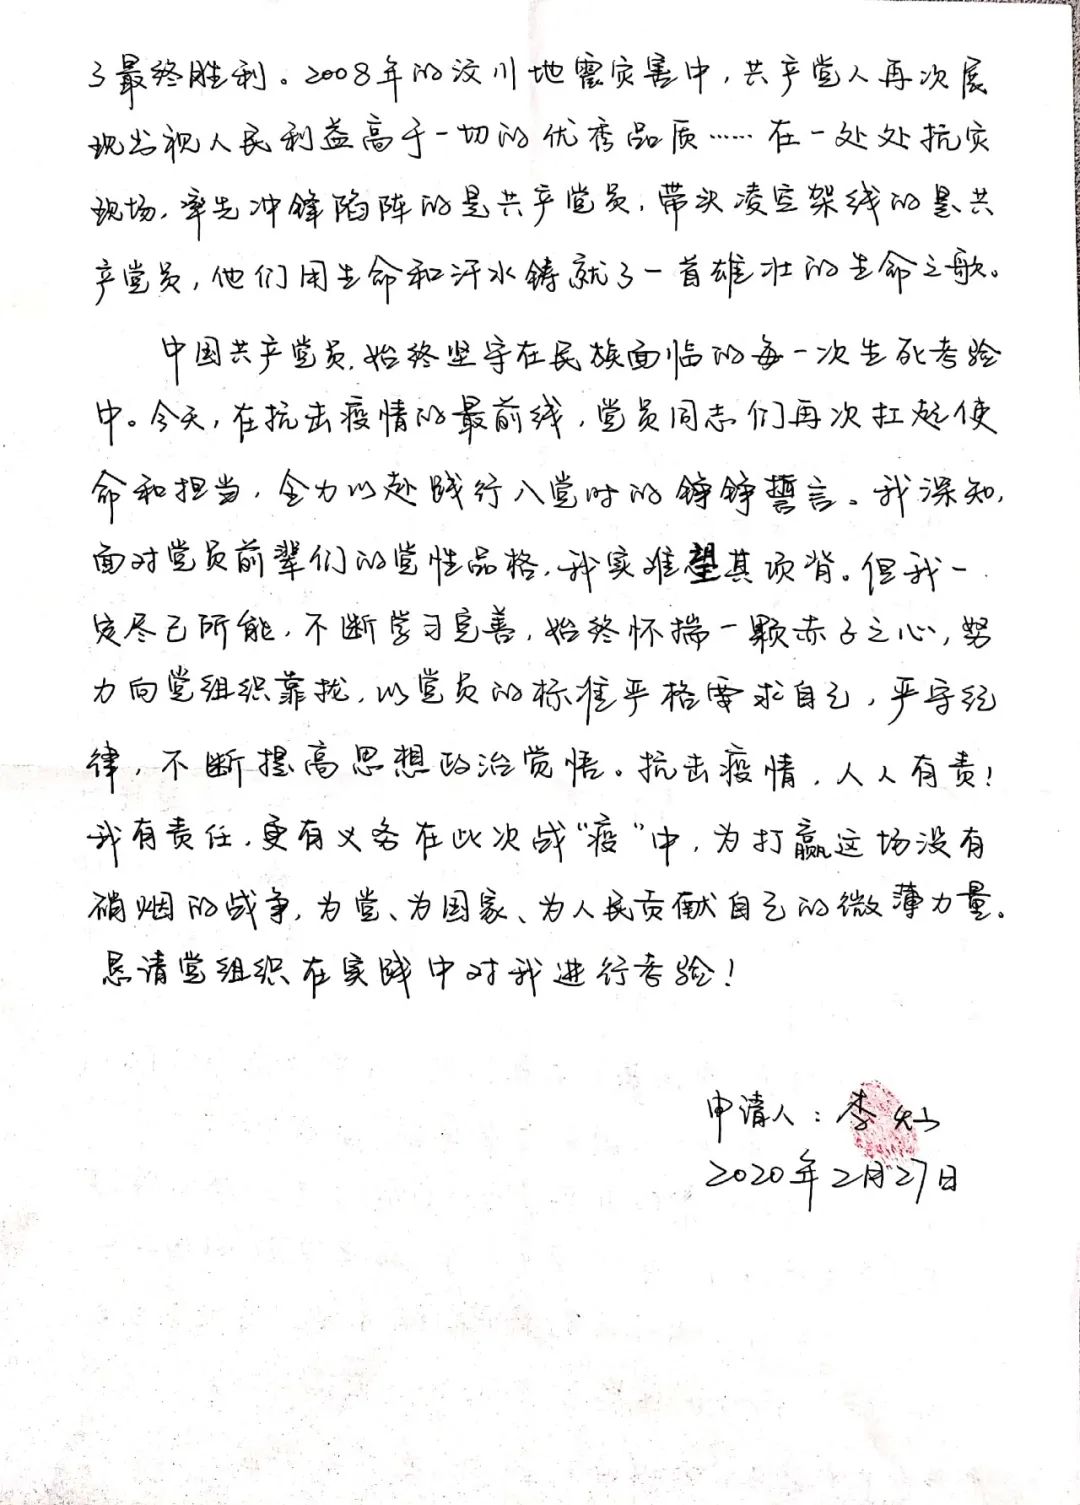 了最终胜利。2008年的汶川地震灾害中，共产党人再次展
现出视人民利益高于一切的优秀品质……在一处处抗灾
现场，率先冲锋陷阵的是共产党员，带头凌空架线的是共
产党员，他们用生命和汗水铸就了一首雄壮的生命之歌。
中国共产党员，始终坚守在民族面临的每一次生死考验
中。今天，在抗击疫情的最前线，党员同志们再次扛起使
命和担当，全力以赴践行入党时的铮铮誓言。我深知，
面对党员前辈们的党性品格，我实难望其项背。但我一
定尽己所能，不断学习完善，始终怀揣一颗赤子之心，努
力向党组织靠拢，以党员的标准严格要求自己，严守纪
律，不断提高思想政治觉悟。抗击疫情，人人有责！
我有责任，更有义务在此次战“疫”中，为打赢这场没有
硝烟的战争，为党、为国家、为人民贡献自己的微薄力量。
恳请党组织在实践中对我进行考验！
申请人：李灿
2020年2月27日